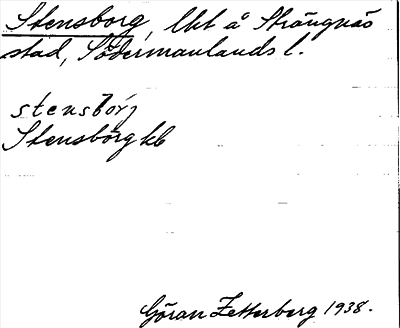 Stensborg, lht å Strängnäs
stad, Södermanlands l.
stensbȯrj
Stensborg kb
Göran Zetterberg 1938.